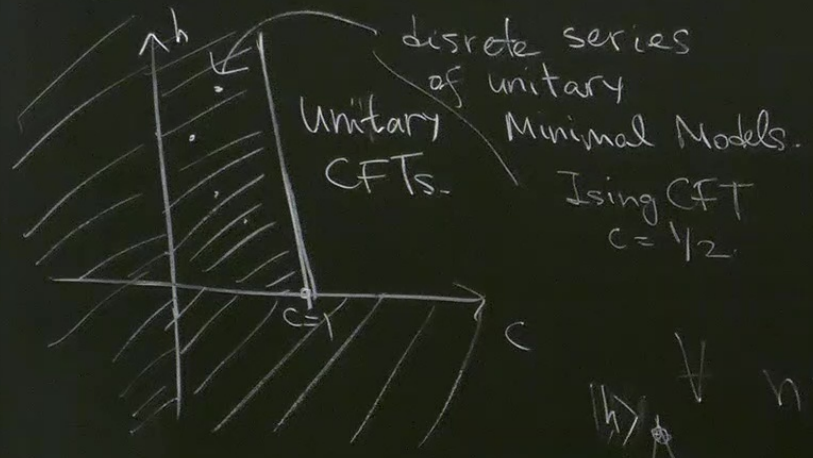 h
disrete series
of unitary
Minimal Models.
Unitary
CFTs.
Ising CFT
c = 1/2.
c=1
c
|h>
h